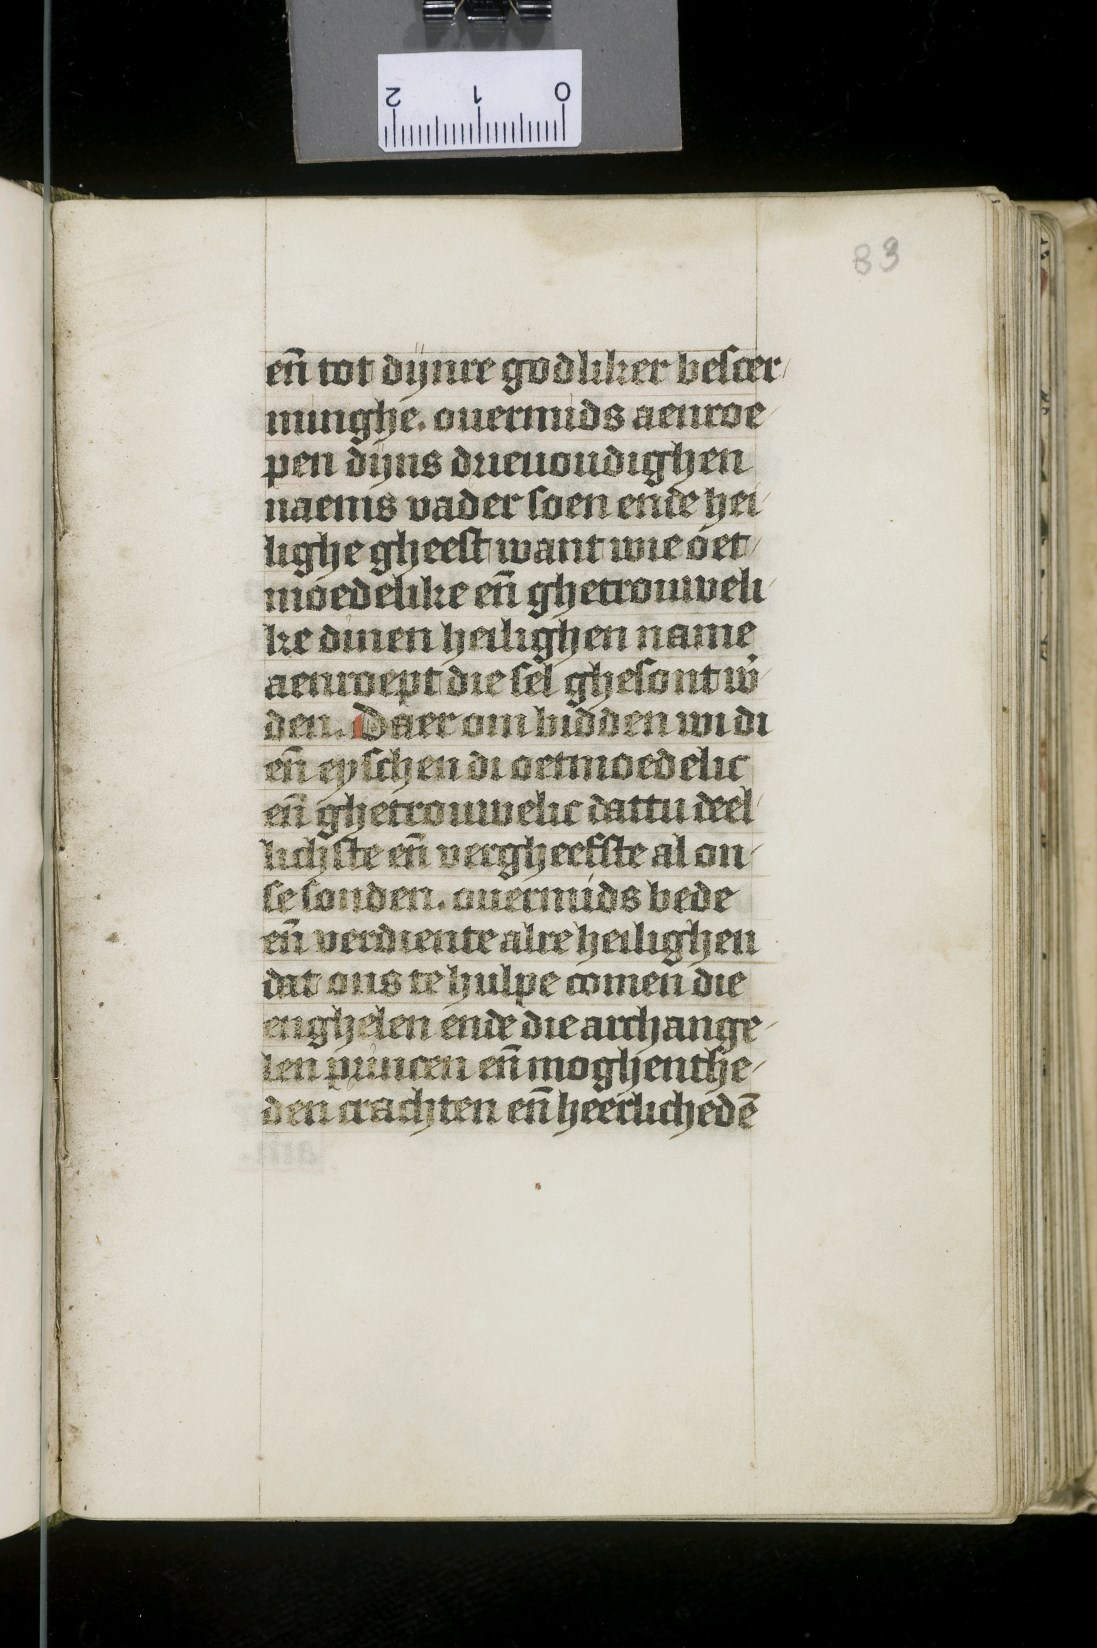 83
en̄ tot dijnre godliker bescer/
minghe. ouermids aenroe/
pen dijns drieuoudighen
naems vader soen ende hei/
lighe gheest want wie oet/
moedelike en̄ ghetrouweli/
ke dinen heilighen name
aenroept die sel ghesont w̉
den. Daer om bidden wi di
en̄ eyschen di oetmoedelic
en̄ ghetrouwelic dattu deel/
lichste en̄ vergheefste al on/
se sonden. ouermids bede
en̄ verdiente alre heilighen
dat ons te hulpe comen die
enghelen ende die archange/
len princen en̄ moghenthe/
den crachten en̄ heerlichedē
2 1 0